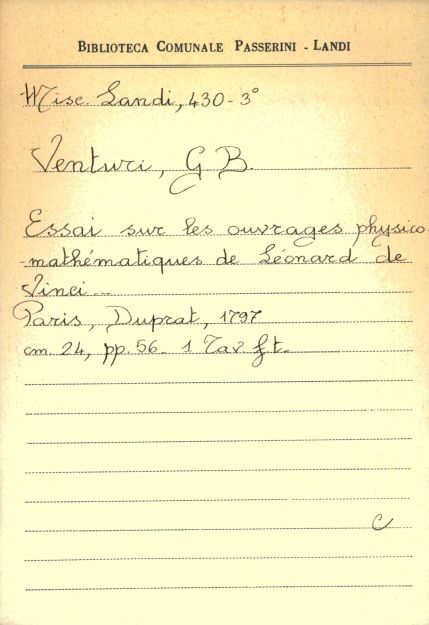 BIBLIOTECA COMUNALE PASSERINI - LANDI
Misc. Landi, 430-3°
Venturi, G B.
Essai sur les ouvrages physico
-mathématiques de Léonard de
Vinci...
Paris, Duprat, 1797
cm. 24, pp. 56. 1 Tav f.t.
C